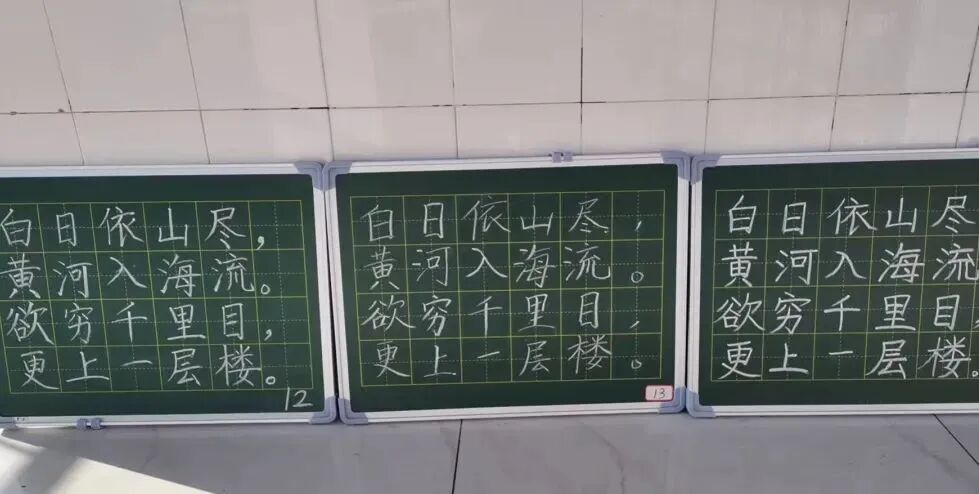 白日依山尽，
黄河入海流。
欲穷千里目，
更上一层楼。
12
白日依山尽，
黄河入海流。
欲穷千里目，
更上一层楼。
13
白日依山尽
黄河入海流
欲穷千里目
更上一层楼。